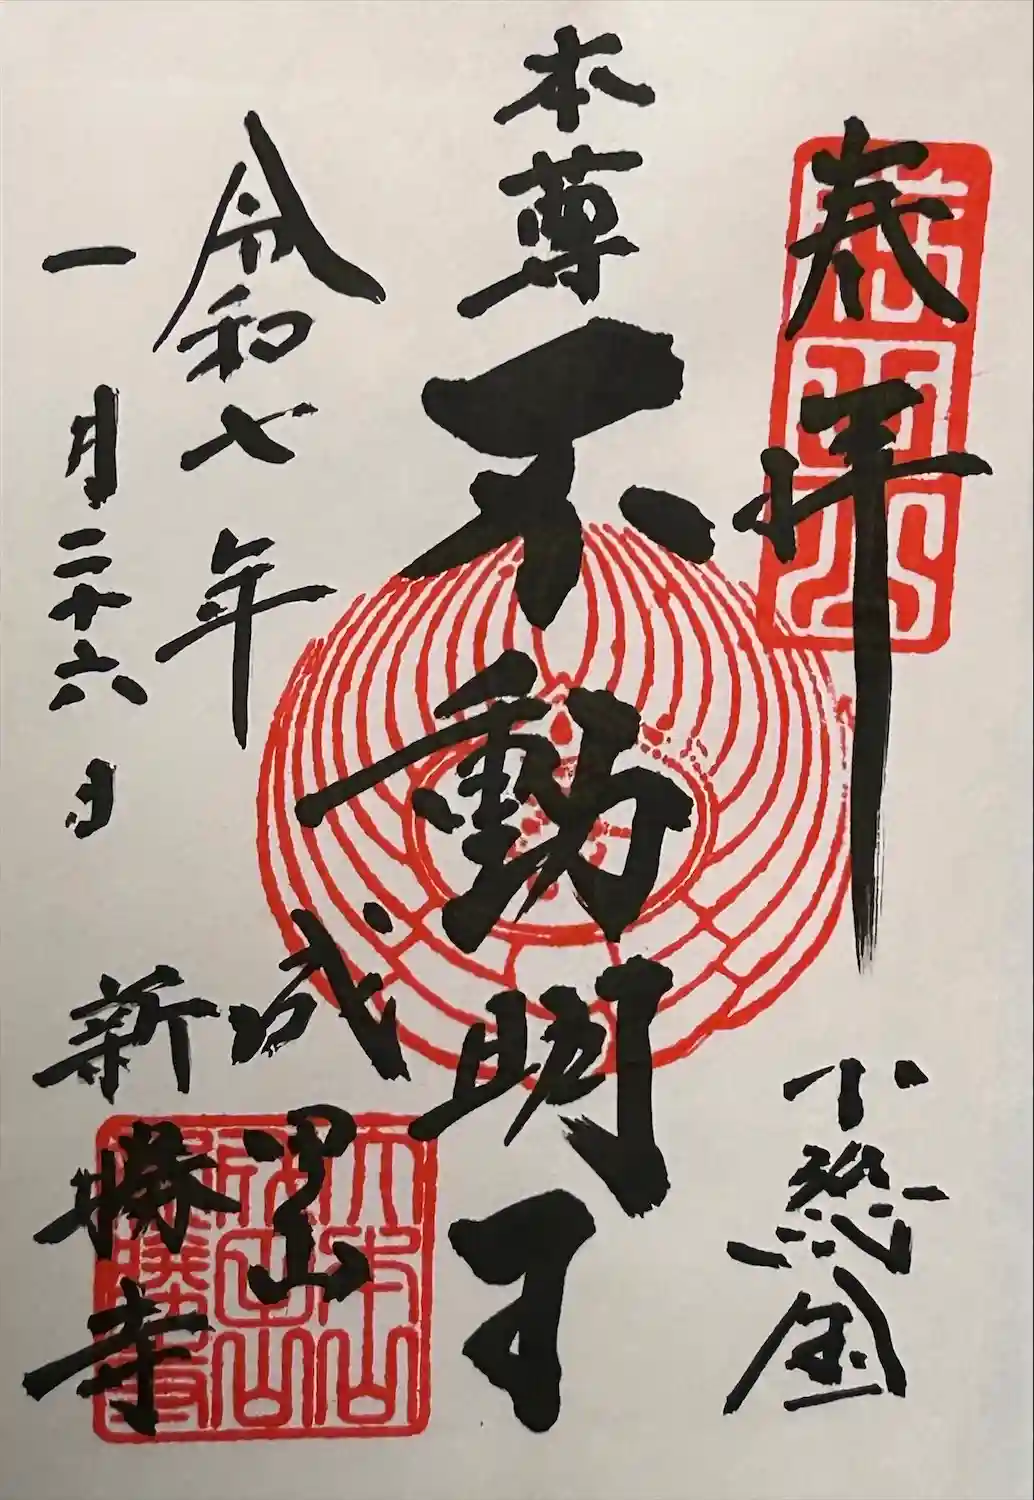 奉拝
下総国
本尊
不動明王
令和七年
一月二十六日
成田山
新勝寺
大本山
成田山
新勝寺